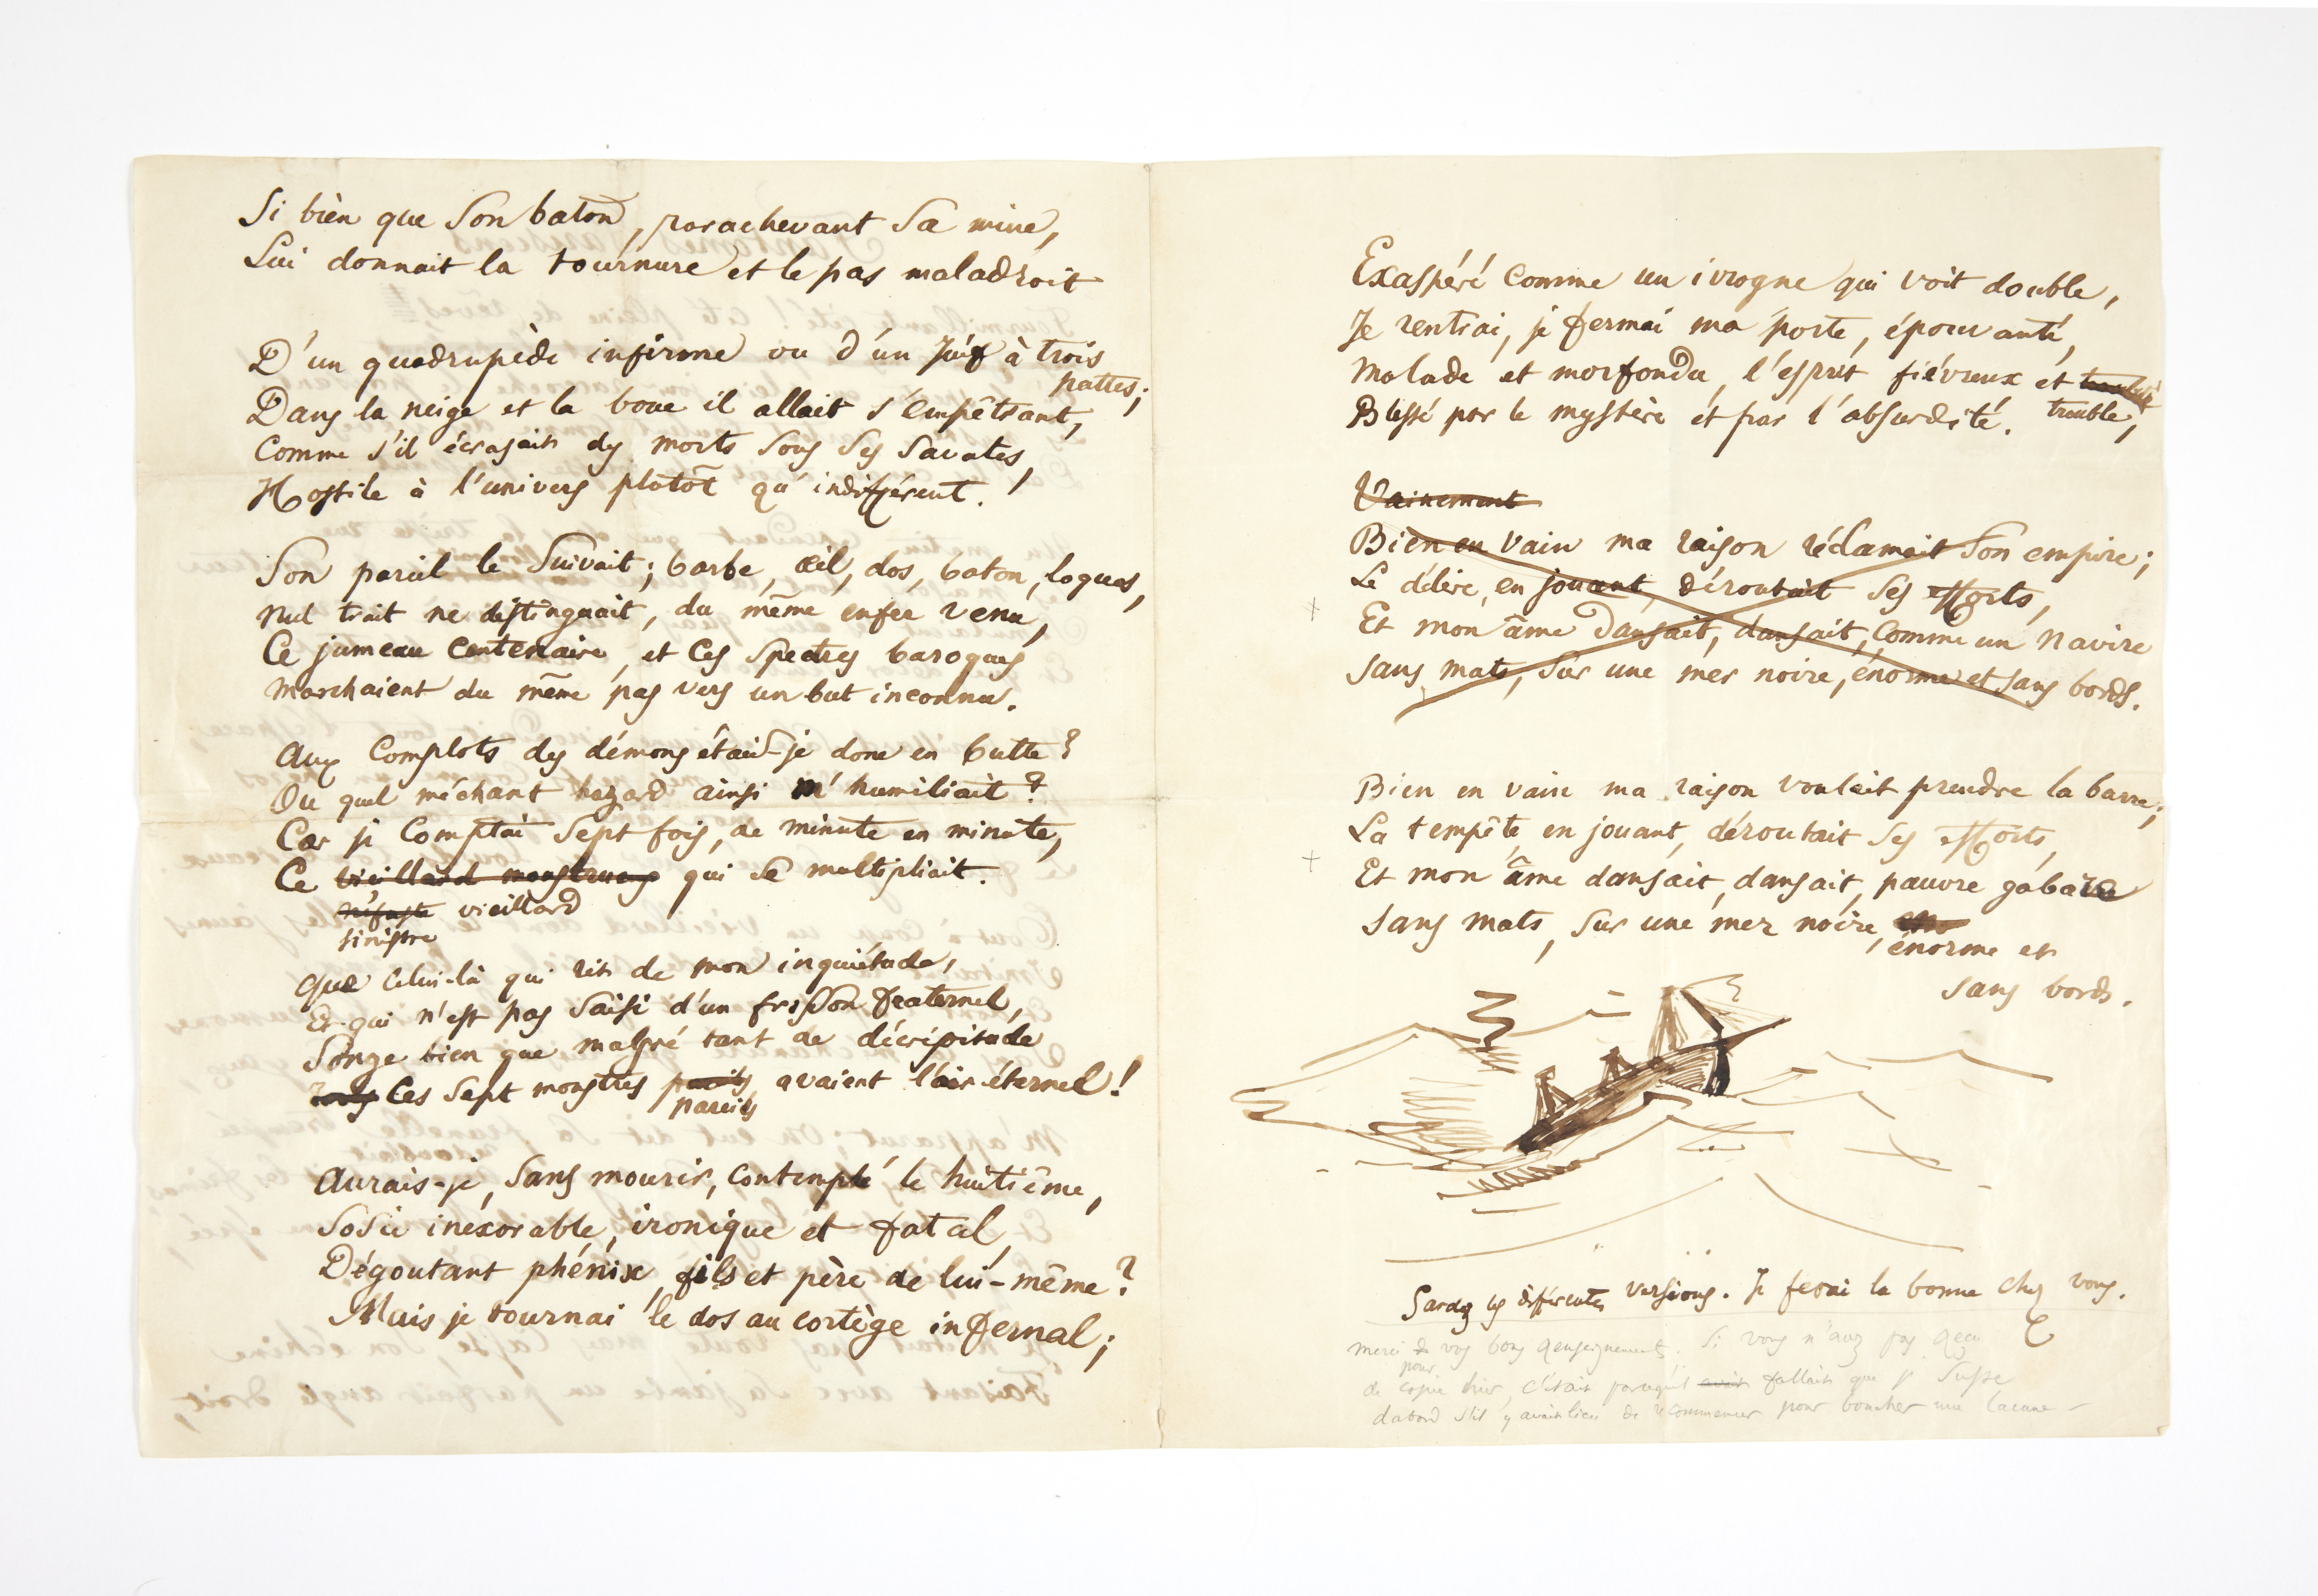 Si bien que son baton, parachevant sa mine,
Lui donnait la tournure et le pas maladroit
D'un quadrupède infirme ou d'un Juif à trois
pattes;
Dans la neige et la boue il allait s'empêtrant,
Comme s'il écrasait des morts sous ses savates,
Hostile à l'univers plutôt qu'indifférent. !
Son pareil le suivait; barbe, œil, dos, baton, loques,
Nul trait ne distinguait, du même enfer venu,
Ce jumeau centenaire, et ces spectres baroques
Marchaient du même pas vers un but inconnu.
Aux complots des démons étais-je donc en butte?
Ou quel méchant hazard ainsi m'humiliait?
Car je comptai sept fois, de minute en minute,
Ce vieillard monstrueux qui se multipliait.
néfaste vieillard
sinistre
Que celui-là qui rit de mon inquiétude,
Et qui n'est pas saisi d'un frisson fraternel,
Songe bien que malgré tant de décrépitude
Tous Ces sept monstres pareils avaient l'air éternel!
pareils
Aurais-je, sans mourir, contemplé le huitième,
Sosie inexorable, ironique et fatal,
Dégoutant phénix, fils et père de lui-même?
Mais je tournai le dos au cortège infernal;
Exaspéré comme un ivrogne qui voit double,
Je rentrai, je fermai ma porte, épouvanté,
Malade et morfondu, l'esprit fiévreux et
trouble,
Blessé par le mystère et par l'absurdité.
Vainement
Bien en vain ma raison réclamait son empire;
Le délire, en jouant, déroutait ses efforts,
Et mon âme dansait, dansait, comme un navire
Sans mats, sur une mer noire, énorme et sans bords.
Bien en vain ma raison voulait prendre la barre;
La tempête, en jouant, déroutait ses efforts,
Et mon âme dansait, dansait, pauvre gabare
Sans mats, sur une mer noire,
énorme et
sans bords.
Gardez les différentes versions. Je ferai la bonne chez vous.
merci de vos bons renseignements. Si vous n'avez pas reçu
pour
de copie hier, c'était parcequ'il avait fallait que je susse
d'abord s'il y avait lieu de recommencer pour boucher une lacune –